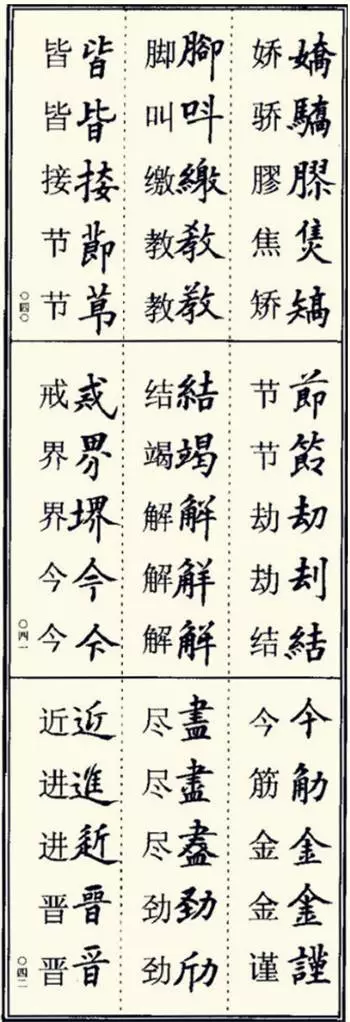 娇 嬌
骄 驕
膠 膠
焦 焦
矫 矯
脚 腳
叫 呌
缴 繳
教 教
教 教
皆 皆
皆 皆
接 接
节 節
节 莭
〇四〇
节 節
节 節
劫 劫
劫 刦
结 結
结 結
竭 竭
解 解
解 解
解 解
戒 戒
界 界
界 堺
今 今
今 今
〇四一
今 今
筋 觔
金 金
金 金
谨 謹
尽 盡
尽 盡
尽 盡
劲 勁
劲
近 近
进 進
进
晋 晉
晋 晋
〇四二